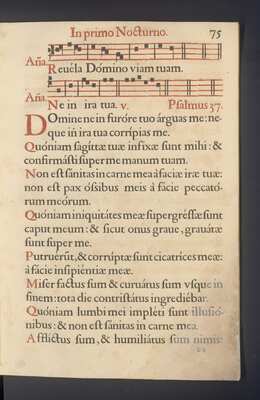 In primo Nocturno. 75
Aña
Reuéla Dómino viam tuam.
Aña
Ne in ira tua. v. Psalmus 37.
Domine ne in furóre tuo árguas me: ne-
que in ira tua corrípias me.
Quóniam sagíttæ tuæ infixæ sunt mihi: &
confirmásti super me manum tuam.
Non est sánitas in carne mea à fácie iræ tuæ:
non est pax óssibus meis à fácie peccató-
rum meórum.
Quóniam iniquitátes meæ supergréssæ sunt
caput meum: & sicut onus graue, grauátæ
sunt super me.
Putruérūt, & corruptæ sunt cicatrices meæ:
à fácie insipiéntiæ meæ.
Miser factus sum & curuátus sum vsque in
finem: tota die contristátus ingrediébar.
Quóniam lumbi mei impléti sunt illusió-
nibus: & non est sánitas in carne mea.
Afflíctus sum, & humiliátus sum nimis: